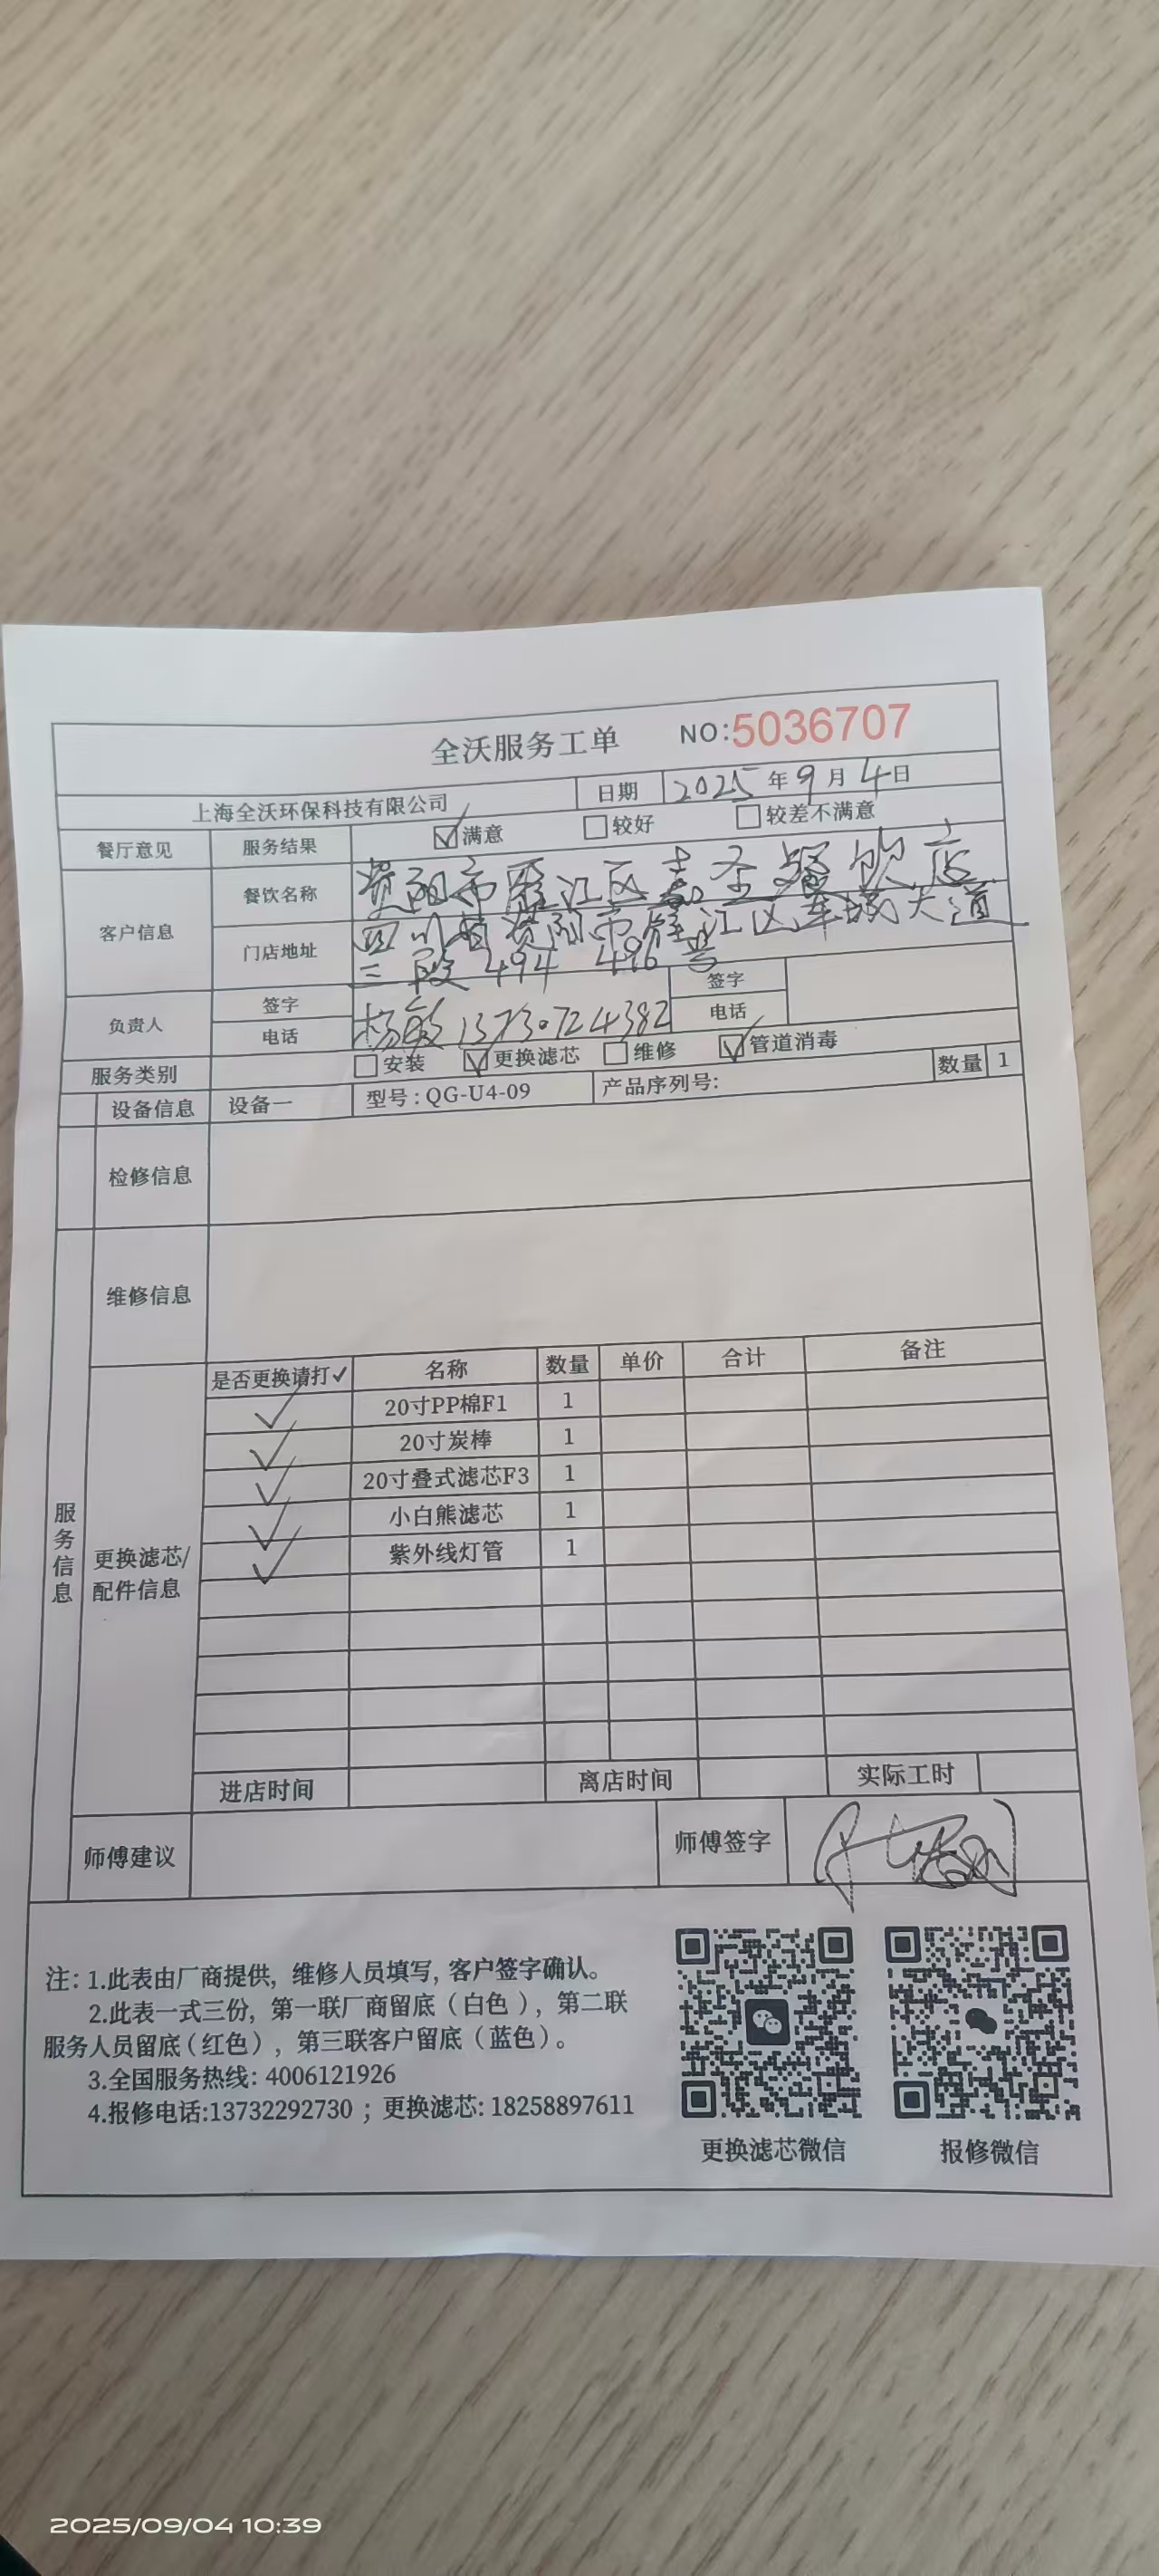 全沃服务工单 NO:5036707
上海全沃环保科技有限公司 日期 2025年9月4日
餐厅意见 服务结果 满意 较好 较差不满意
客户信息 餐饮名称 资阳市雁江区嘉圣餐饮店
门店地址 四川省资阳市雁江区车城大道
三段494 496号
负责人 签字 杨敏 签字
电话 电话
服务类别 安装 更换滤芯 维修 管道消毒
设备信息 设备一 型号:QG-U4-09 产品序列号: 数量 1
检修信息
维修信息
服务信息
更换滤芯/
配件信息
是否更换请打✓ 名称 数量 单价 合计 备注
✓ 20寸PP棉F1 1
✓ 20寸炭棒 1
✓ 20寸叠式滤芯F3 1
✓ 小白熊滤芯 1
✓ 紫外线灯管 1
进店时间 离店时间 实际工时
师傅建议 师傅签字
注: 1.此表由厂商提供, 维修人员填写, 客户签字确认。
2.此表一式三份, 第一联厂商留底（白色）, 第二联
服务人员留底（红色）, 第三联客户留底（蓝色）。
3.全国服务热线: 4006121926
4.报修电话:13732292730 ; 更换滤芯: 18258897611
更换滤芯微信 报修微信
2025/09/04 10:39